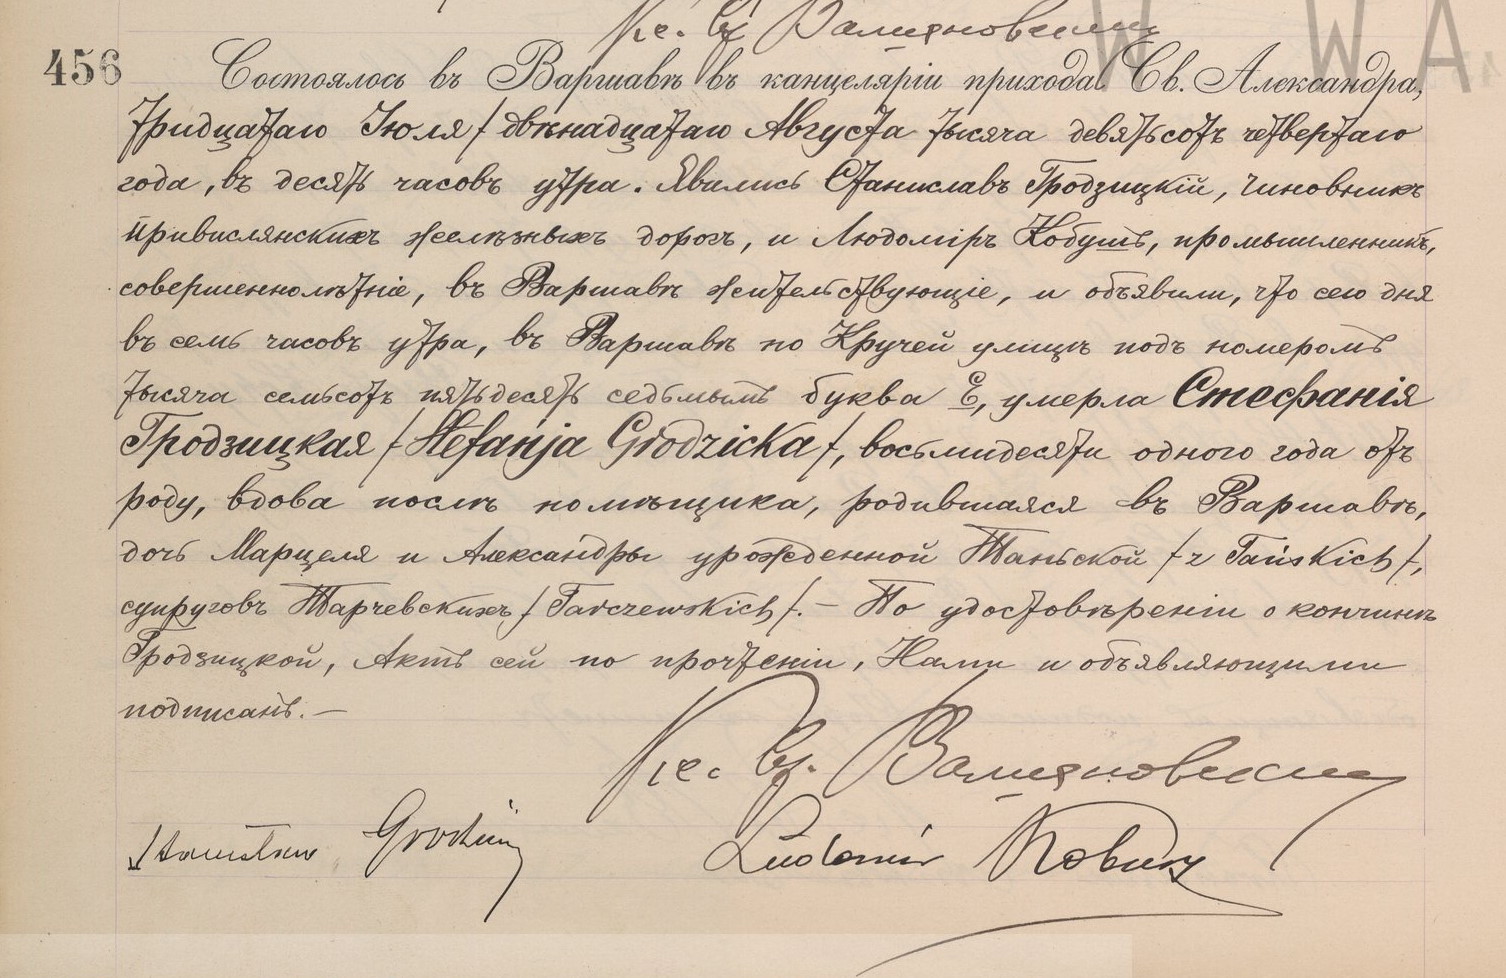 Кс. Вл. Валишновски
W W A
456
Состоялось въ Варшавѣ въ канцеляріи прихода Св. Александра,
тридцатаго Іюля / двѣнадцатаго Августа тысяча девятьсотъ четвертаго
года, въ десять часовъ утра. Явились Станиславъ Гродзицкій, чиновникъ
Привислянскихъ желѣзныхъ дорогъ, и Людомiръ Кобушъ, промышленникъ,
совершеннолѣтніе, въ Варшавѣ жительствующіе, и объявили, что сего дня
въ семь часовъ утра, въ Варшавѣ по Кручей улицѣ подъ номеромъ
тысяча семьсотъ пятьдесятъ седьмымъ буква Е, умерла Стефанія
Гродзицкая / Stefanja Grodzicka /, восьмидесяти одного года отъ
роду, вдова послѣ помѣщика, родившаяся въ Варшавѣ,
дочь Марцеля и Александры урожденной Таньской / z Tańskich /,
супруговъ Тарчевскихъ / Tarczewskich /. — По удостовѣреніи о кончинѣ
Гродзицкой, Актъ сей по прочтеніи, Нами и объявляющими
подписанъ. —
Кс. Вл.
Stanisław Grodzicki Ludomir Kobusz